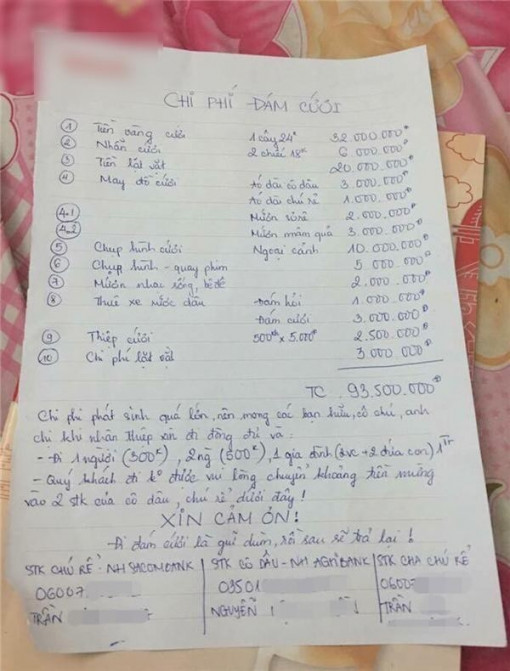 CHI PHÍ ĐÁM CƯỚI
1 Tiền vàng cưới 1 cây 24k 32.000.000đ
2 Nhẫn cưới 2 chiếc 18k 6.000.000đ
3 Tiền lặt vặt 20.000.000đ
4 May đồ cưới Áo dài cô dâu 3.000.000đ
Áo dài chú rể 1.000.000đ
4.1 Mướn soirê 2.000.000đ
4.2 Mướn mâm quả 3.000.000đ
5 Chụp hình cưới Ngoại cảnh 10.000.000đ
6 Chụp hình - quay phim 5.000.000đ
7 Mướn nhạc sống, 2.000.000đ
8 Thuê xe rước dâu Đám hỏi 1.000.000đ
Đám cưới 3.000.000đ
9 Thiệp cưới 500th x 5.000đ 2.500.000đ
10 Chi phí lặt vặt 3.000.000đ
TC. 93.500.000đ
Chi phí phát sinh quá lớn, nên mong các bạn hữu, cô chú, anh
chị khi nhận thiệp xin đi đông đủ và:
- Đi 1 người (300k), 2ng (500k), 1 gia đình (2vc + 2 đứa con) 1Tr
- Quý khách đi ko được vui lòng chuyển khoảng tiền mừng
vào 2 stk của cô dâu, chú rể dưới đây!
XIN CẢM ƠN!
- Đi đám cưới là gửi dùm, rồi sau sẽ trả lại!
STK CHÚ RỂ: NH SACOMBANK | STK CÔ DÂU - NH AGRIBANK | STK CHA CHÚ RỂ
06007 03501 06007
TRẦN NGUYỄN TRẦN